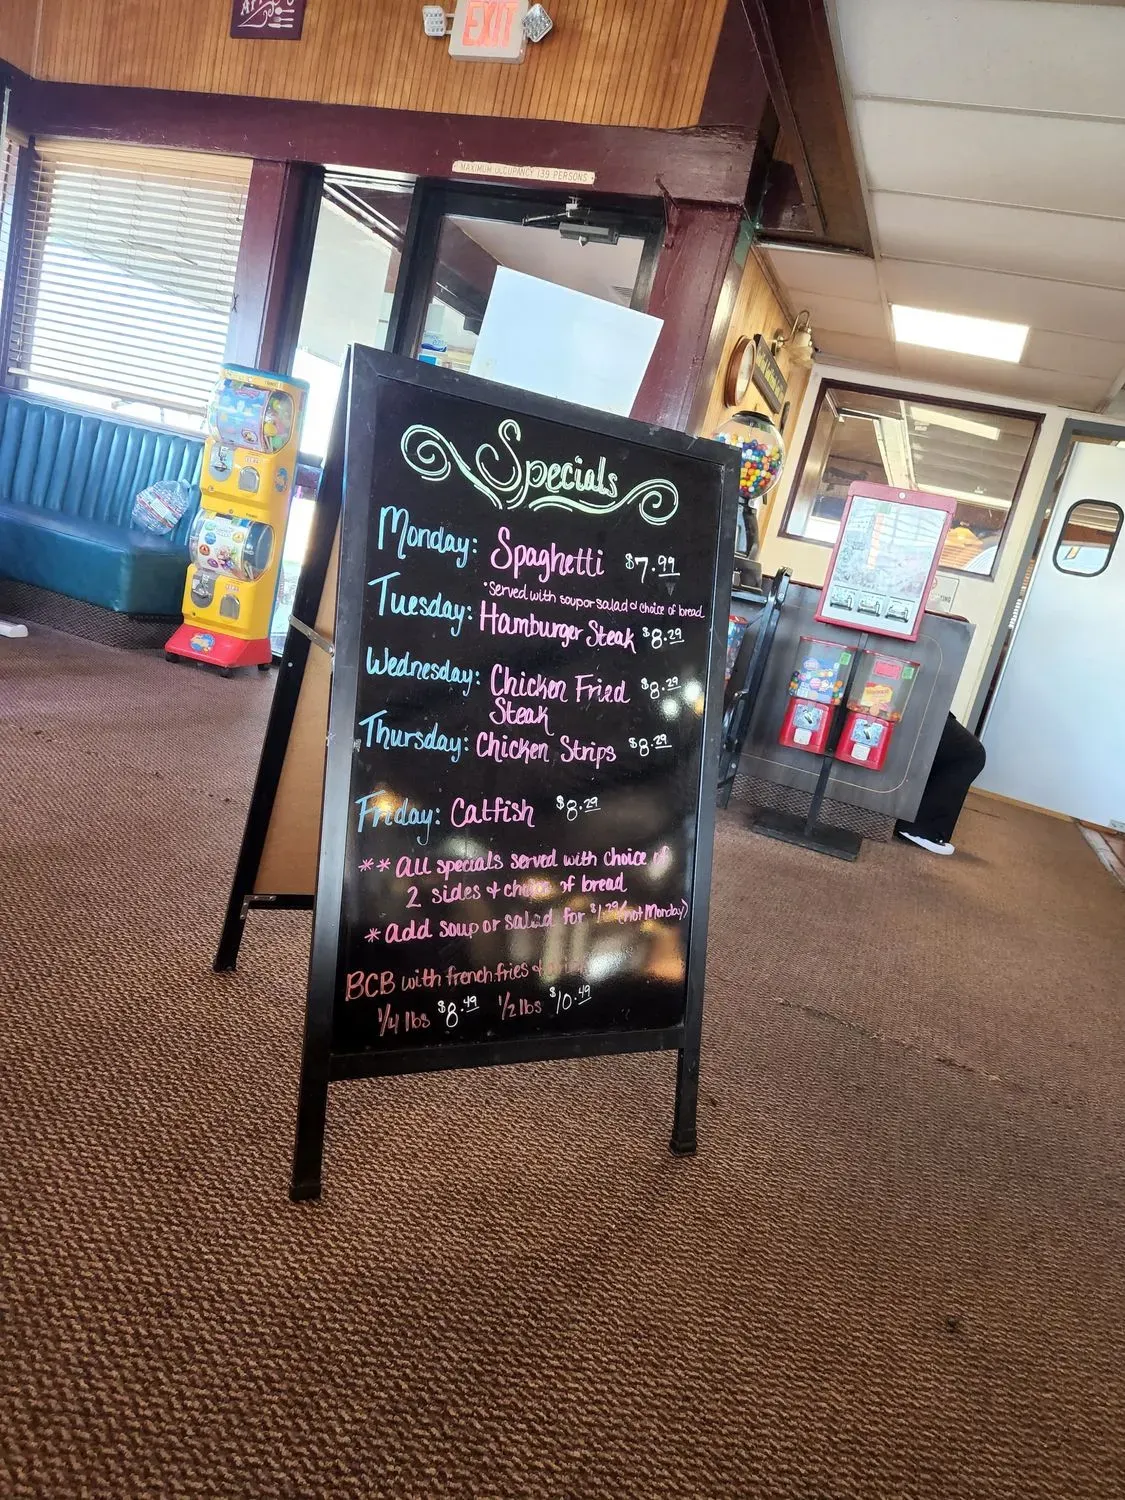 EXIT
MAXIMUM OCCUPANCY 139 PERSONS
Specials
Monday: Spaghetti $7.99
•served with soup or salad & choice of bread
Tuesday: Hamburger Steak $8.29
Wednesday: Chicken Fried $8.29
Steak
Thursday: Chicken Strips $8.29
Friday: Catfish $8.29
** All specials served with choice of
2 sides & choice of bread
* Add soup or salad for $1.29 (not Monday)
BCB with french fries &
1/4 lbs $8.49 1/2 lbs $10.49